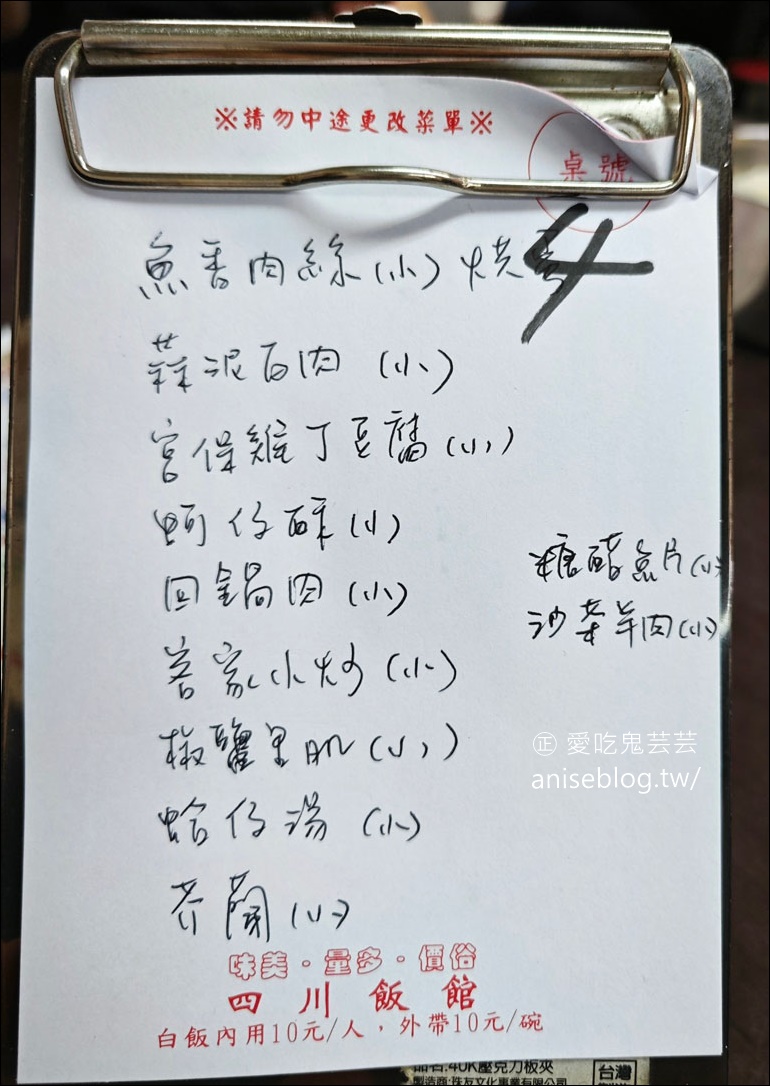 ※請勿中途更改菜單※
桌號
4
魚香肉絲(小) 烘蛋
蒜泥白肉 (小)
宮保雞丁豆腐(小)
蚵仔酥(小)
回鍋肉 (小)
糖醋魚片(小)
沙茶羊肉(小)
客家小炒 (小)
椒鹽里肌(小)
㊣ 愛吃鬼芸芸
aniseblog.tw/
蛤仔湯 (小)
芥蘭(小)
味美·量多·價俗
四川飯館
白飯內用10元/人,外帶10元/碗
品名:40K壓克力板夾
製造商:珠友文化事業有限公司
台灣